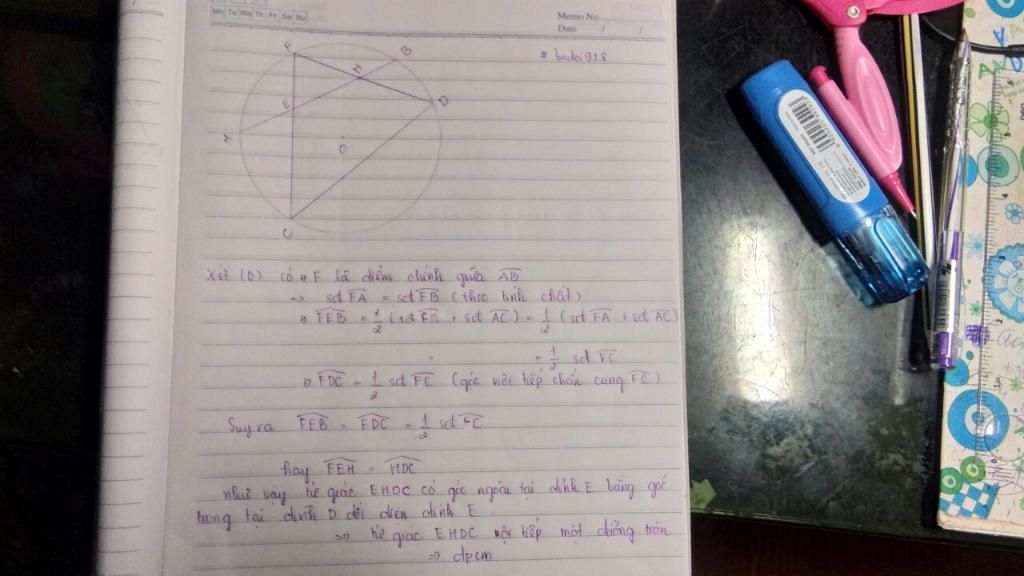 Mo Tu We Th Fr Sa Su
Memo No.
Date / /
F
B
H
D
E
A
O
C
Xét (O) có F là điểm chính giữa AB
=> sđ FA = sđ FB (theo tính chất)
FEB = 1/2 (sđ FB + sđ AC) = 1/2 (sđ FA + sđ AC)
= 1/2 sđ FC
FDC = 1/2 sđ FC (góc nội tiếp chắn cung FC)
Suy ra FEB = FDC = 1/2 sđ FC
hay FEH = HDC
như vậy tứ giác EHDC có góc ngoài tại đỉnh E bằng góc
trong tại đỉnh D đối diện đỉnh E
=> tứ giác EHDC nội tiếp một đường tròn
=> đpcm